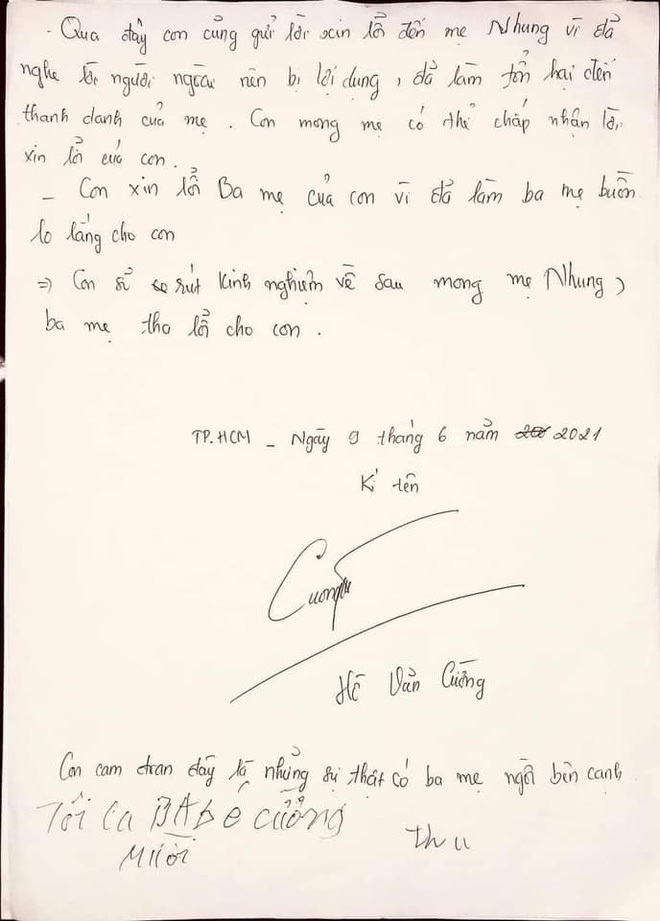 - Qua đây con củng gửi lời xin lổi đến mẹ Nhung vì đả
nghe lời người ngoài nên bị lợi dụng, đả làm tổn hại đến
thanh danh của mẹ. Con mong mẹ có thể chấp nhận lời
xin lổi của con.
- Con xin lổi Ba mẹ của con vì đả làm ba mẹ buồn
lo lắng cho con
=> Con sẻ rút kinh nghiệm về sau mong mẹ Nhung,
ba mẹ tha lổi cho con.
TP.HCM - Ngày 9 tháng 6 năm 2021
Kí tên
Cuong
Hồ Văn Cường
Con cam đoan đây là nhửng sự thật có ba mẹ ngồi bên cạnh
Tôi La BA bé cường
Mười
thu